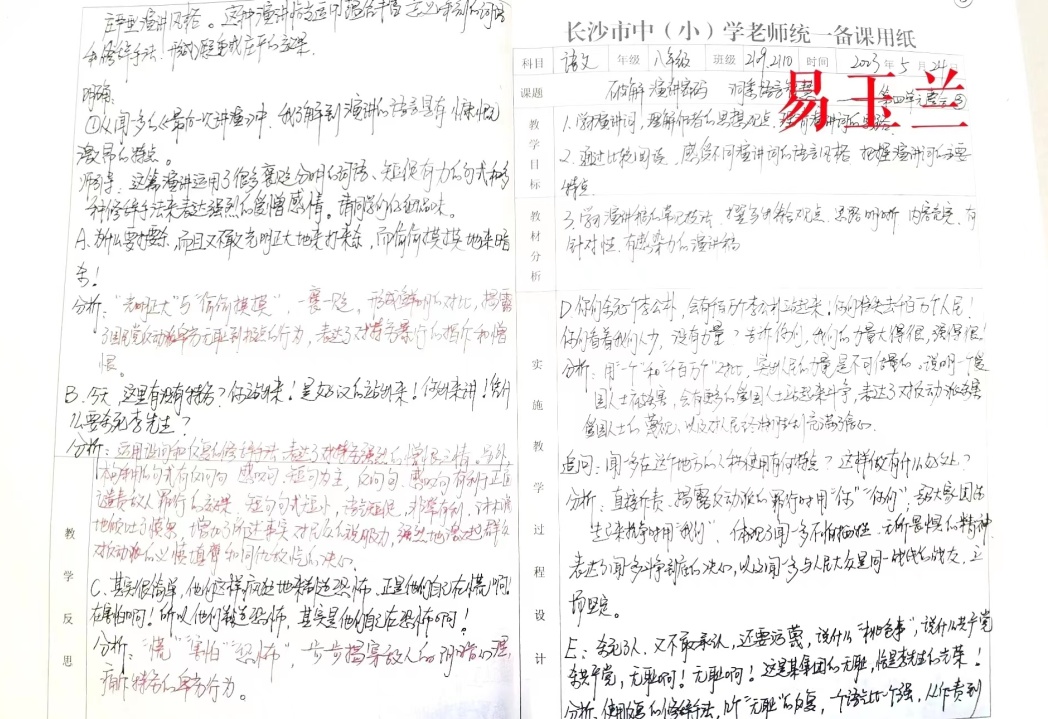 庄严型演讲风格。这种演讲情运用
和修辞手法,形成庄严的效果.
明确:
①从闻一多的《最后一次讲演》中,我了解到演讲的语言具有慷慨
激昂的特点。
师引导:这篇演讲运用了很多褒贬分明的词语、短促有力的句式和多
种修辞手法来表达强烈的爱憎感情。请同学们仔细品味。
A.为什么要打要杀,而且又不敢光明正大地来打来杀,而偷偷摸摸地来暗
杀!
分析:“光明正大”与“偷偷摸摸”,一褒一贬,形成鲜明的对比,揭露
了国民党反动派卑劣无耻到极点的行为,表达了对特务暴行的指斥和憎
恨。
B.今天,这里有没有特务?你站出来!是好汉的站出来!你出来讲!凭什
么要杀死李先生?
分析:运用设问和反复的修辞手法,表达了对特务强烈的憎恨之情。另外
本句中的句式有反问句、感叹句,短句为主,反问句、感叹句有利于正面
谴责敌人罪行的效果,短句句式短小,
C.其实很简单,他们这样疯狂地来制造恐怖,正是他们自己在慌啊!
在害怕啊!所以他们制造恐怖,其实是他们自己在恐怖啊!
分析:“慌”“害怕”“恐怖”,步步揭穿敌人的阴暗心理,
痛斥特务的卑劣行为。
教学反思
长沙市中(小)学老师统一备课用纸
科目 语文 年级 八年级 班级 2109.2110 时间 2023年5月24日
课题 破解演讲密码 洞悉语言智慧
易玉兰
教学目标
1.学习演讲词,理解作者的思想观点,
2.通过比较阅读,感受不同演讲词的语言风格,把握演讲词的主要
特点
教材分析
3.学习演讲稿的常见技法,撰写观点、思路明晰、内容充实、有
针对性、有感染力的演讲稿
D你们杀死一个李公朴,会有千百万个李公朴站起来!你们将失去千百万个人民!
你们看着我们人少,没有力量?告诉你们,我们的力量大得很,强得很!
分析:用“一个”和“千百万个”对比,突出人民的力量是不可估量的。说明一个爱
国人士被杀害,会有更多的爱国人士站起来斗争,表达了对反动派杀害
爱国人士的蔑视,以及对人民终将胜利充满了信心.
追问:闻一多在这个地方的人称使用有何特点?这样做有什么好处?
分析:直接斥责、揭露反动派的罪行时用“你”“你们”;号召大家团结
起来抗争时用“我们”,体现了闻一多不怕牺牲、无所畏惧的精神,
表达了闻一多斗争到底的决心,以及闻一多与人民大众是同一战线的战友,立
场坚定。
实施教学过程设计
E:杀死了人,又不敢承认,还要诬蔑人,说什么“桃色事件”,说什么共产党
杀共产党,无耻啊!无耻啊!这是某集团的无耻,恰是李先生的光荣!
分析:使用反复的修辞手法,几个“无耻”的反复,一个语气比一个强,从斥责到